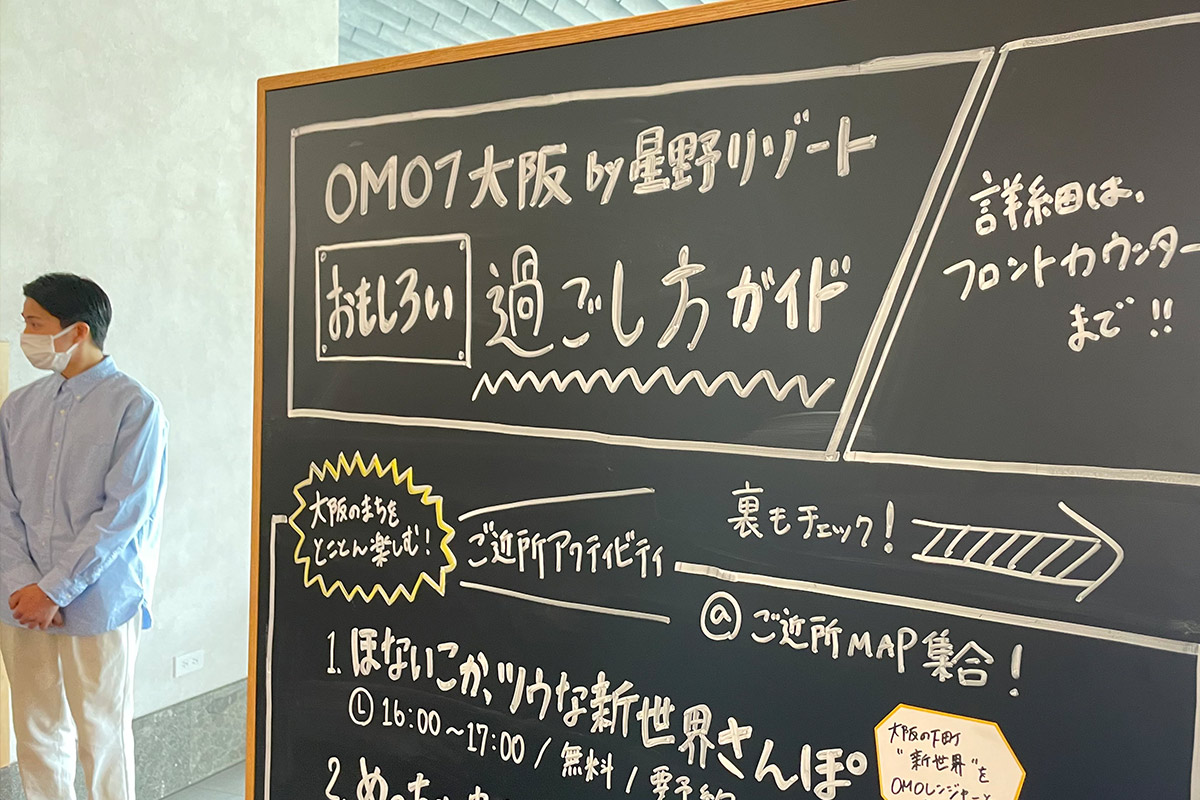 OMO7大阪 by 星野リゾート
おもしろい
過ごし方ガイド
詳細は、
フロントカウンター
まで!!
大阪のまちを
とことん楽しむ!
ご近所アクティビティ
裏もチェック!
@ご近所MAP集合!
1. ほないこか、ツウな新世界さんぽ
16:00~17:00 / 無料 / 要予約
大阪の下町
"新世界"を
OMOレンジャーと
2. めっちゃ